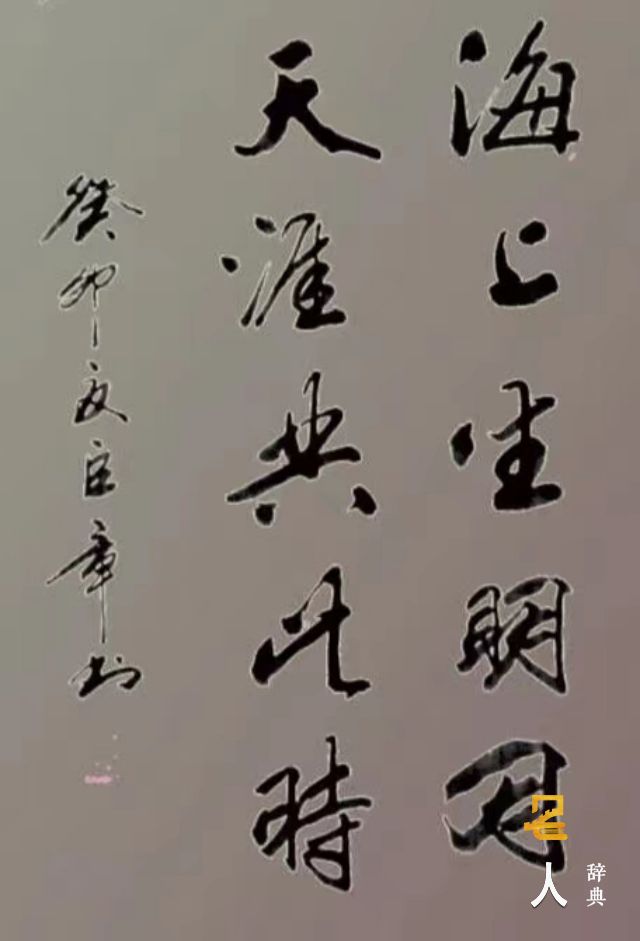 海上生明月
天涯共此時
癸卯友臣章书
名人
辞典